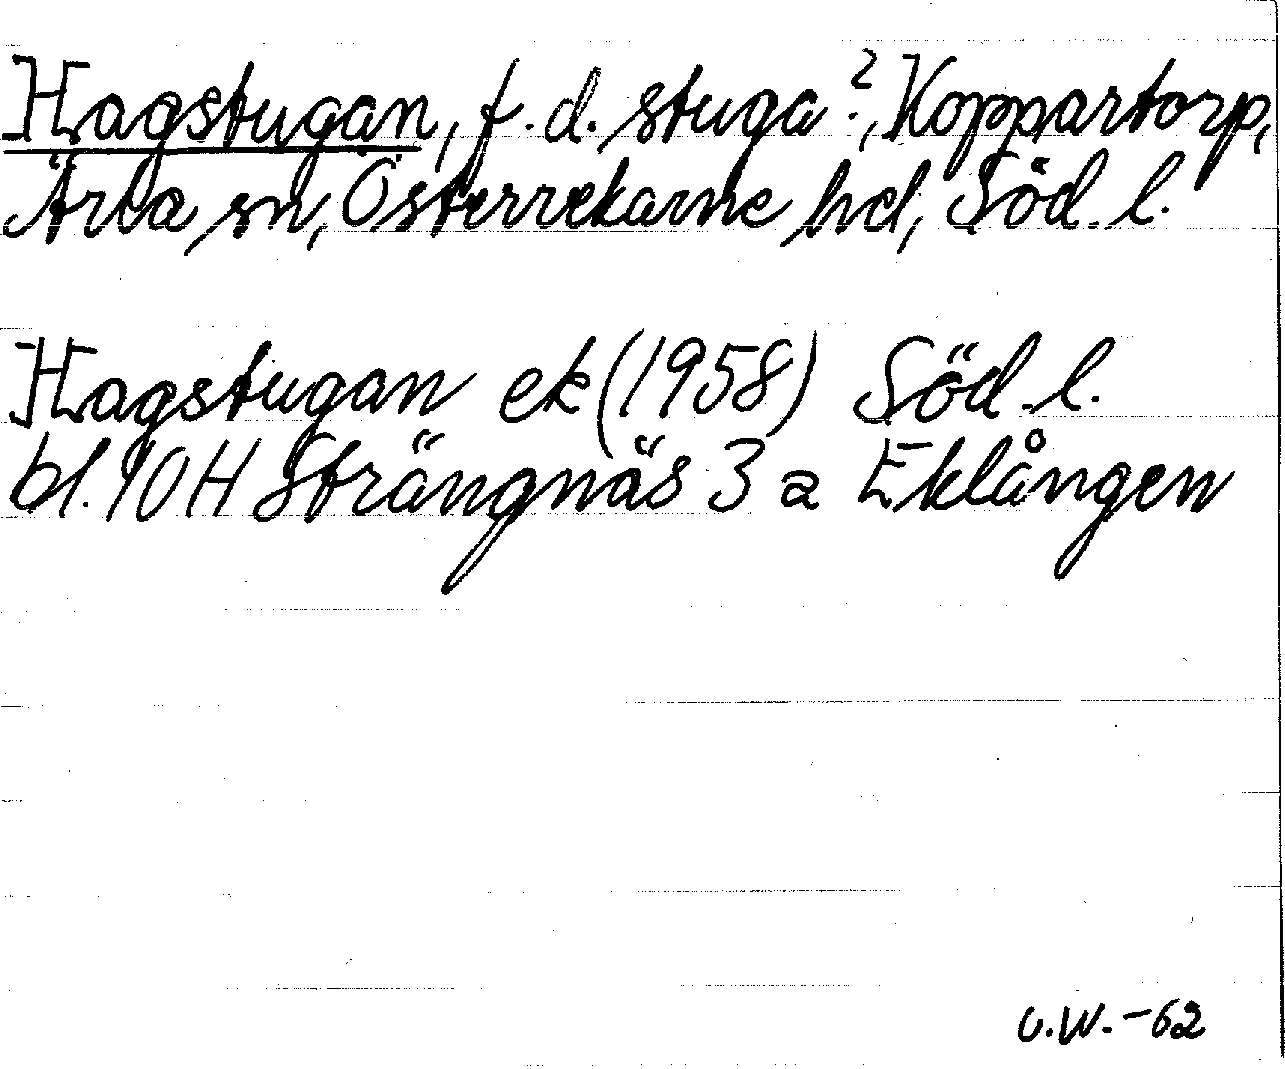 Hagstugan, f.d. stuga?, Koppartorp,
Ärla sn, Österrekarne hd, Söd. l.
Hagstugan ek (1958) Söd. l.
bl. 10 H Strängnäs 3 a Eklången
U.W. -62